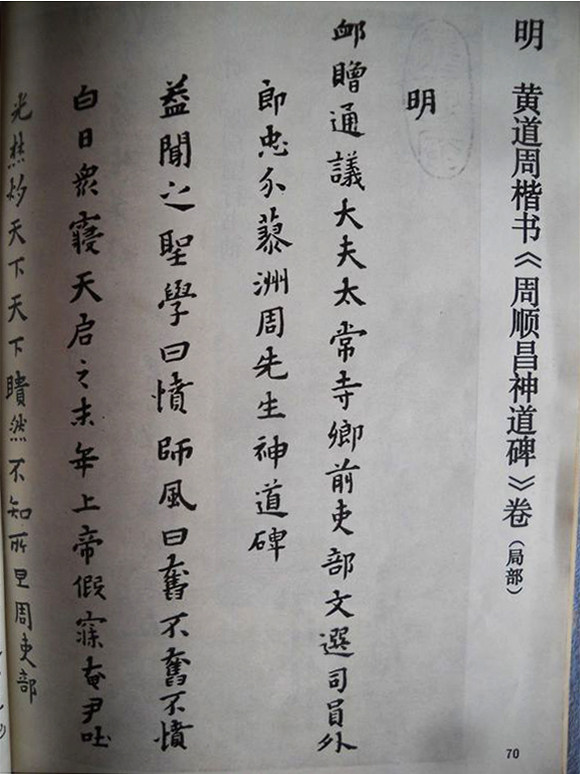 明 黄道周楷书《周顺昌神道碑》卷(局部)
明
卹贈通議大夫太常寺卿前吏部文選司員外
郎忠介蓼洲周先生神道碑
益聞之聖學曰憤師風曰奮不奮不憤
白日衆寢天启之末年上帝假寐奄尹吐
光燃灼天下天下瞶然不知所䍐周吏部
70